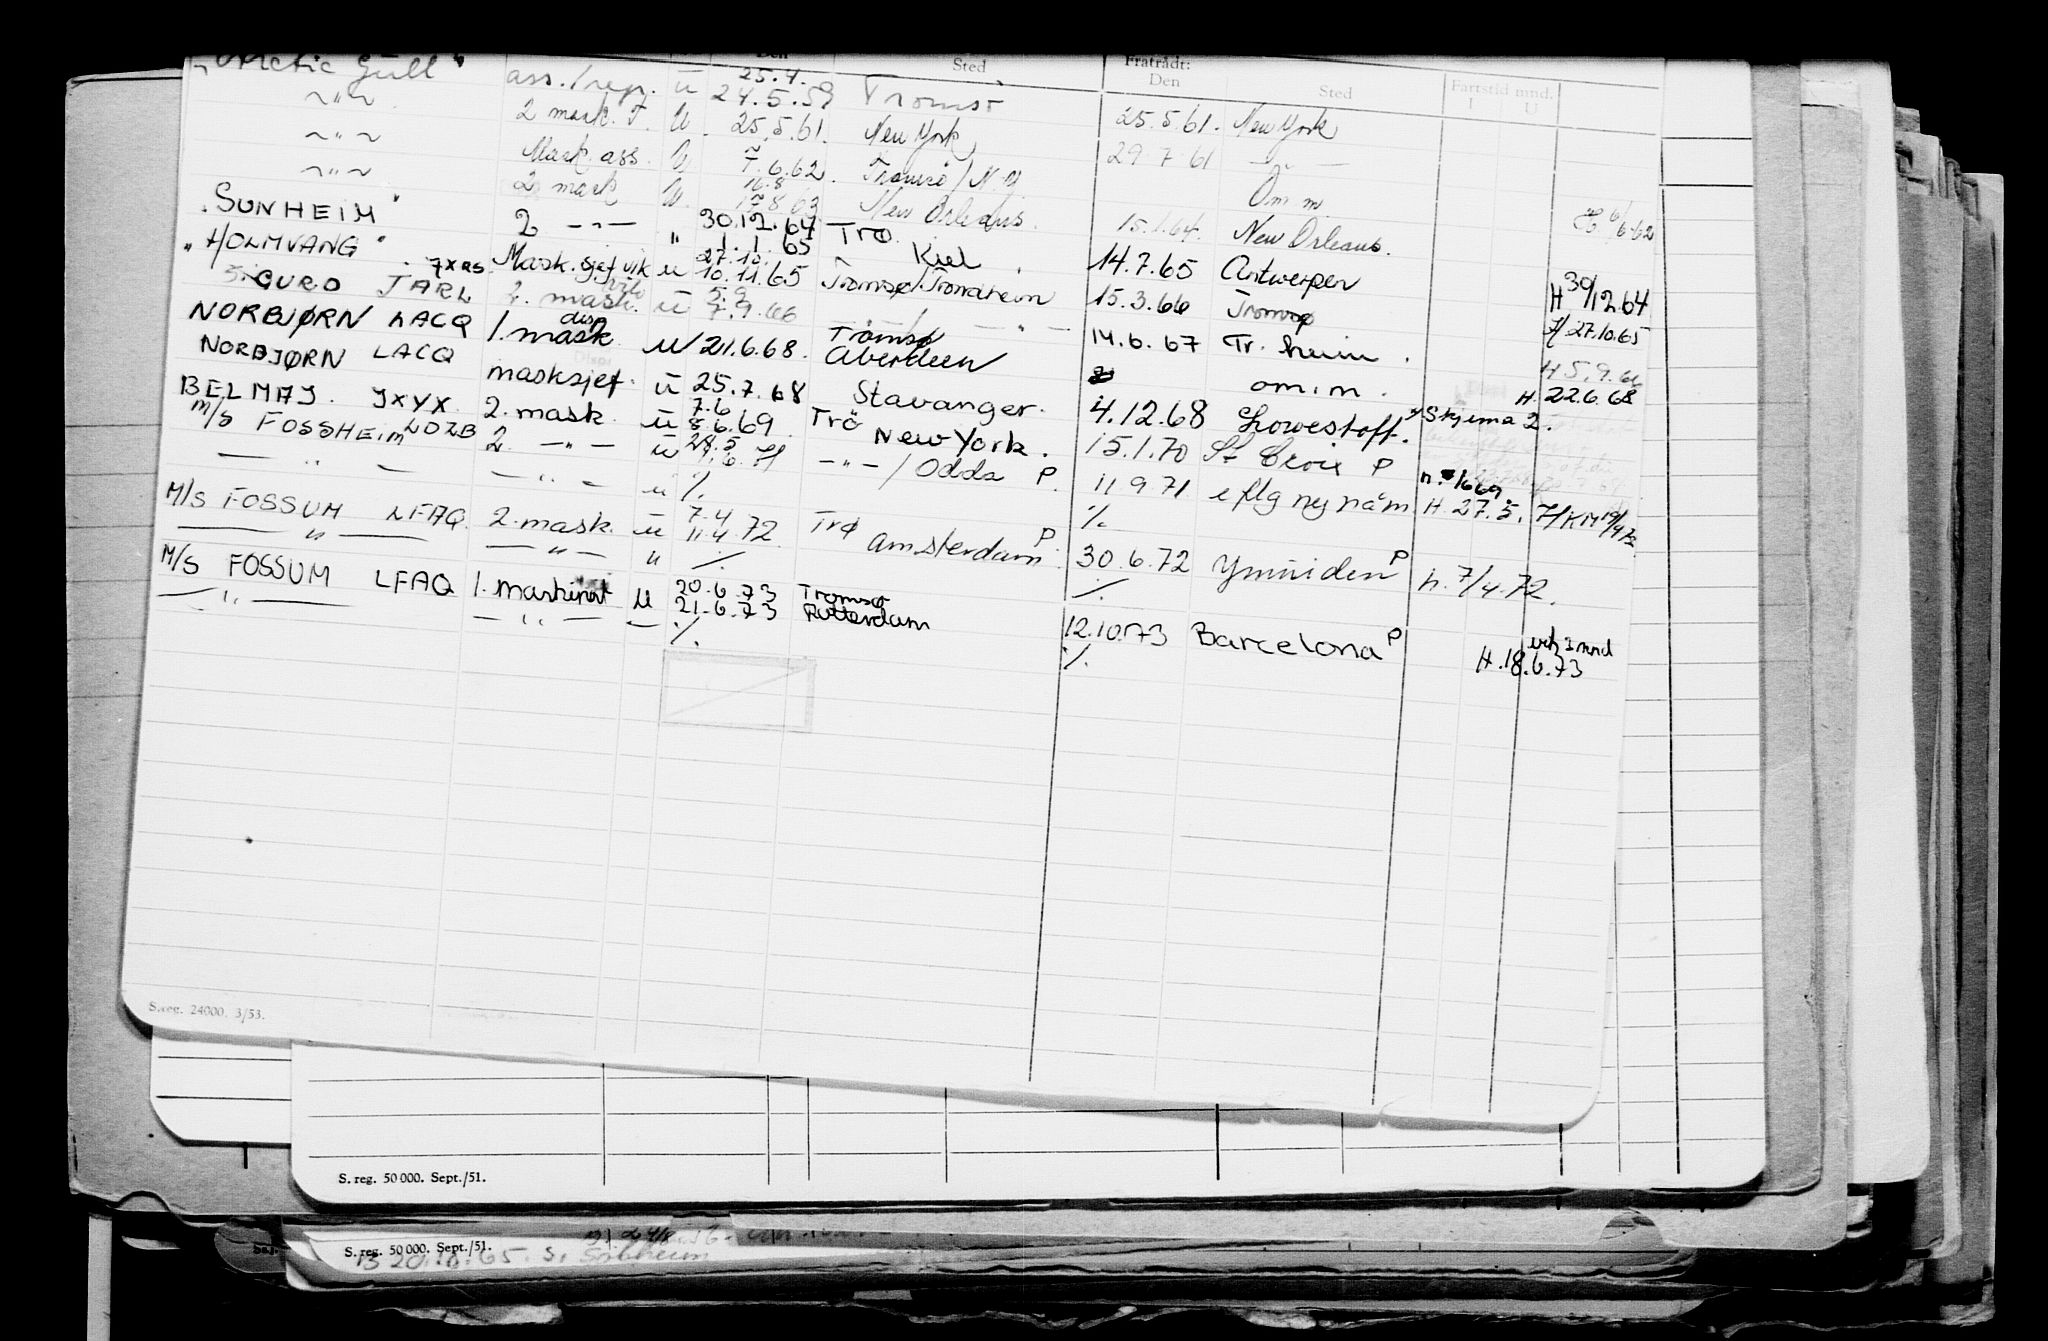 Den Sted Fratrådt: Den Sted Fartstid mnd. I U
"Arctic Gull" ass./rep. u 25.4. 24.5.59 Tromsö 25.5.61. New York
~"~ 2 mask. u 25.5.61. New York 29.7.61
~"~ Mask. ass. u 7.6.62. Tromsö/N.Y. Om m 6/6-62
~"~ 2 mask u 16.8 New Orleans. 15.1.64. New Orleans.
"SUNHEIM" 2 -"- " 30.12.64 1.1.65 Trø. Kiel 14.7.65 Antwerpen H 30/12.64
"HOLMVANG" JXRS Mask.sjef vik u 27.10. 10.11.65 Tromsø/Trondheim 15.3.66 Tromsø H 27.10.65
SIGURD JARL 2. mask. u 5.9 7.9.66 -"- 14.6.67 Tr.heim. H 5.9.66
NORBJØRN LACQ 1. mask disp u 21.6.68. Tromsø Aberdeen om.m. H. 22.6.68
NORBJØRN LACQ masksjef. u 25.7.68 Stavanger. 4.12.68 Lowestoft. Skjema 2.
BELMAJ. JXYX. 2. mask. u 7.6 8.6.69. Trö New York. 15.1.70 St Croix P
M/S FOSSHEIM LDZB 2. -"- u -"-/Odda P. 11.9.71 e flg nynäm H. 27.5.
-"- -"- u % %
M/S FOSSUM LFAQ. 2. mask. u 7.4 11.4.72. Trø Amsterdam P. 30.6.72 Ymuiden P h. 7/4.72.
-"- -"- " % %
M/S FOSSUM LFAQ 1. maskinist u 20.6.73 21.6.73 Tromsø Rotterdam 12.10.73 Barcelona P H. 18.6.73
-"- -"- - % %
S.reg. 24000. 3/53.
S. reg. 50 000. Sept./51.
S. reg. 50 000. Sept./51.